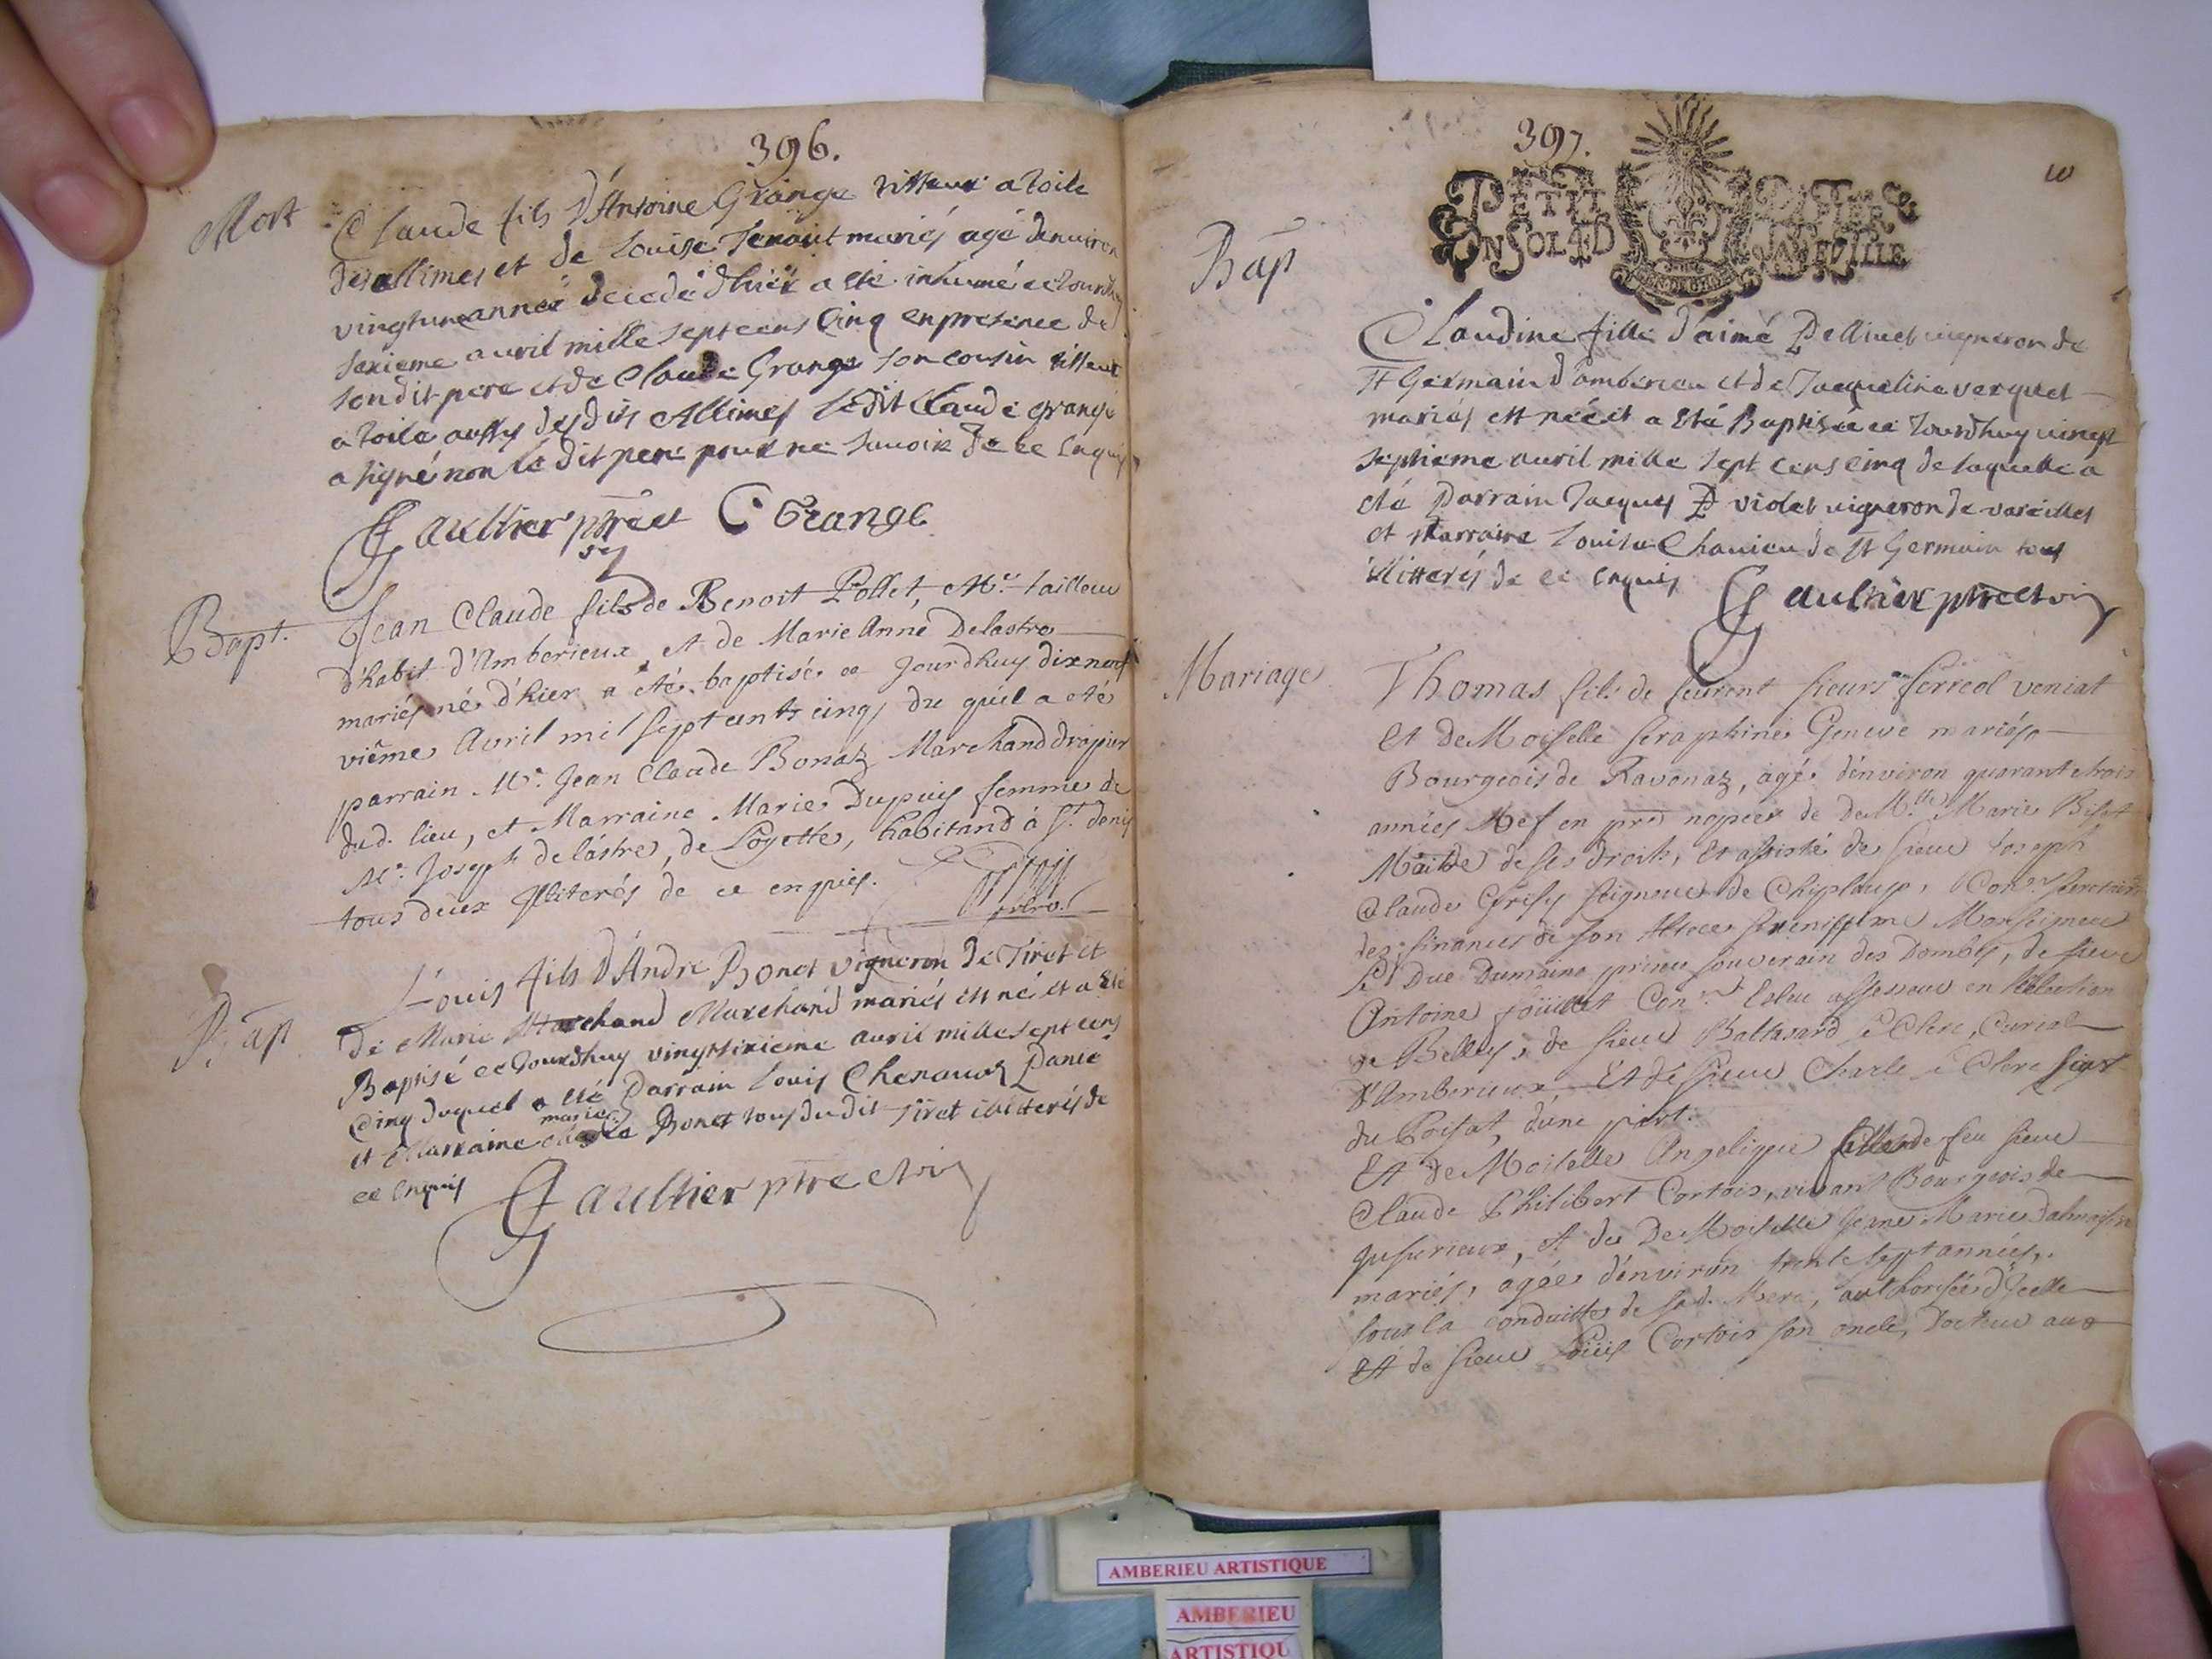 396.
Mort
Claude fils d'Antoine Grange tisseur a toile
des allimes et de Louise Tenant mariés agé denuiron
vingtune année decedé d'hier a été inhumé ce Jourdhuy
sexieme auril mille sept cens Cinq en presence de
son dit pere et de Claude Grange son cousin tisseur
a toile aussy desdits Allimes le dit Claude grange
a signé non le dit pere pour ne sauoir de ce Enquis
Gaulthier ptre et C Grange
Bapt.
Jean Claude fils de Benoit Pollet, Mre tailleur
d'habit d'Amberieux, et de Marie Anne Delastre
mariés né d'hier a été baptisé ce Jourdhuy dixneuf
viême Avril mil sept cents cinq, du quil a eté
parrain Mr. Jean Claude Bonaz Marchand drapier
dud. lieu, et Marraine Marie Dupuis femme de
Mr. Joseph delâstre, de Loyette, habitand à St. denis
tous deux Illiterés de ce enquis.
Bap
Louis fils d'André Bonet vigneron de Tiret et
de Marie Marchand Marchand mariés est né et a Eté
Baptisé ce Jourdhuy vingtsixieme auril mille sept cens
Cinq duquel a Eté Parrain Louis Chenauaz
et Marraine marie Bonet tous du dit Tiret illitterés de
ce Enquis
Gaulthier ptre et vic
397.
10
PETIT PAPIER
UN SOL 4 D LA FEUILLE
Bap
Claudine fille d'aimé Pellinet uigneron de
St Germain d'amberieu et de Jacqueline verguet
mariés est née et a Eté Baptisée ce Jourdhuy uingt
septieme auril mille sept cens Cinq de laquelle a
eté Parrain Jacques violet uigneron de vareilles
et Marraine Louise Chauieu de St Germain tous
illitterés de ce Enquis
Gaulthier ptre et vic
Mariage
Thomas fils de feu sieurs ferreol veniat
Et deMoiselle seraphine Geneve mariés
Bourgeois de Ravonaz, agé d'environ quarante trois
années Vef en noppces de deMlle Marie Bisot
Maitre de ses droits, Et assisté de sieur Joseph
Claude Grisy seigneur de Chiploup, Conr secretaire
dez finances de son Altesse serenissime Monseigneur
le Duc Dumaine prince souverain des Dombes, de sieur
Antoine Conr Esleu assesseur en l'election
de Belley, de sieur Baltasard le Clerc, Curial
d'Amberieux Et de sieur Charle le Clerc
du Poisat, d'une part.
Et deMoiselle Angelique fille de feu sieur
Claude Philibert Cortois, vivant Bourgeois de
Jusurieux, et de DeMoiselle Jeane Marie
mariés, agée d'environ trente sept années,
sous la conduitte de sad. Mere, authorisée d'Jcelle
Et de sieur Louis Cortois son oncle, Docteur aux
AMBERIEU ARTISTIQUE
AMBERIEU
ARTISTIQU